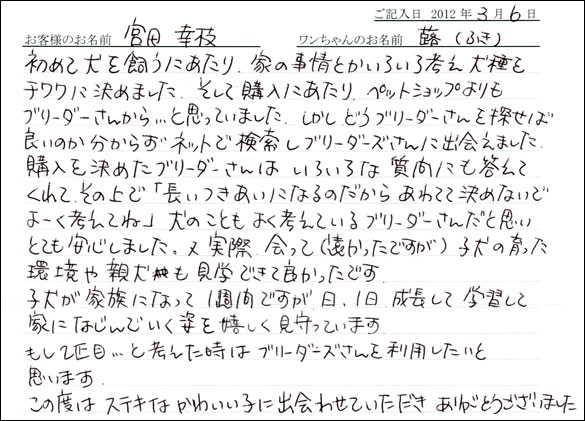 ご記入日 2012 年 3 月 6 日
お客様のお名前 宮田 幸枝 ワンちゃんのお名前 蕗 (ふき)
初めて犬を飼うにあたり、家の事情とかいろいろ考え犬種を
チワワに決めました。そして購入にあたり、ペットショップよりも
ブリーダーさんから…と思っていました。しかしどうブリーダーさんを探せば
良いのか分からず ネットで検索しブリーダーズさんに出会えました。
購入を決めたブリーダーさんは いろいろな質問にも答えて
くれて、その上で「長いつきあいになるのだから あわてて決めないで
よーく考えてね」犬のことも よく考えているブリーダーさんだと思い
とても安心しました。又 実際、会って(遠かったですが)子犬の育った
環境や親犬も見学できて良かったです。
子犬が家族になって 1週間ですが、日、1日 成長して 学習して
家になじんでいく姿を嬉しく見守っています。
もし2匹目…と考えた時は ブリーダーズさんを利用したいと
思います。
この度は ステキな かわいい子に出会わせていただき ありがとうございました